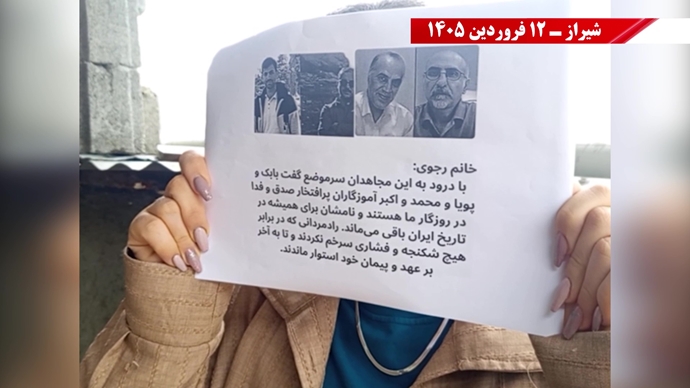 شیراز ــ ۱۲ فروردین ۱۴۰۵
خانم رجوی:
با درود به این مجاهدان سرموضع گفت بابک و
پویا و محمد و اکبر آموزگاران پرافتخار صدق و فدا
در روزگار ما هستند و نامشان برای همیشه در
تاریخ ایران باقی می‌ماند. رادمردانی که در برابر
هیچ شکنجه و فشاری سرخم نکردند و تا به آخر
بر عهد و پیمان خود استوار ماندند.